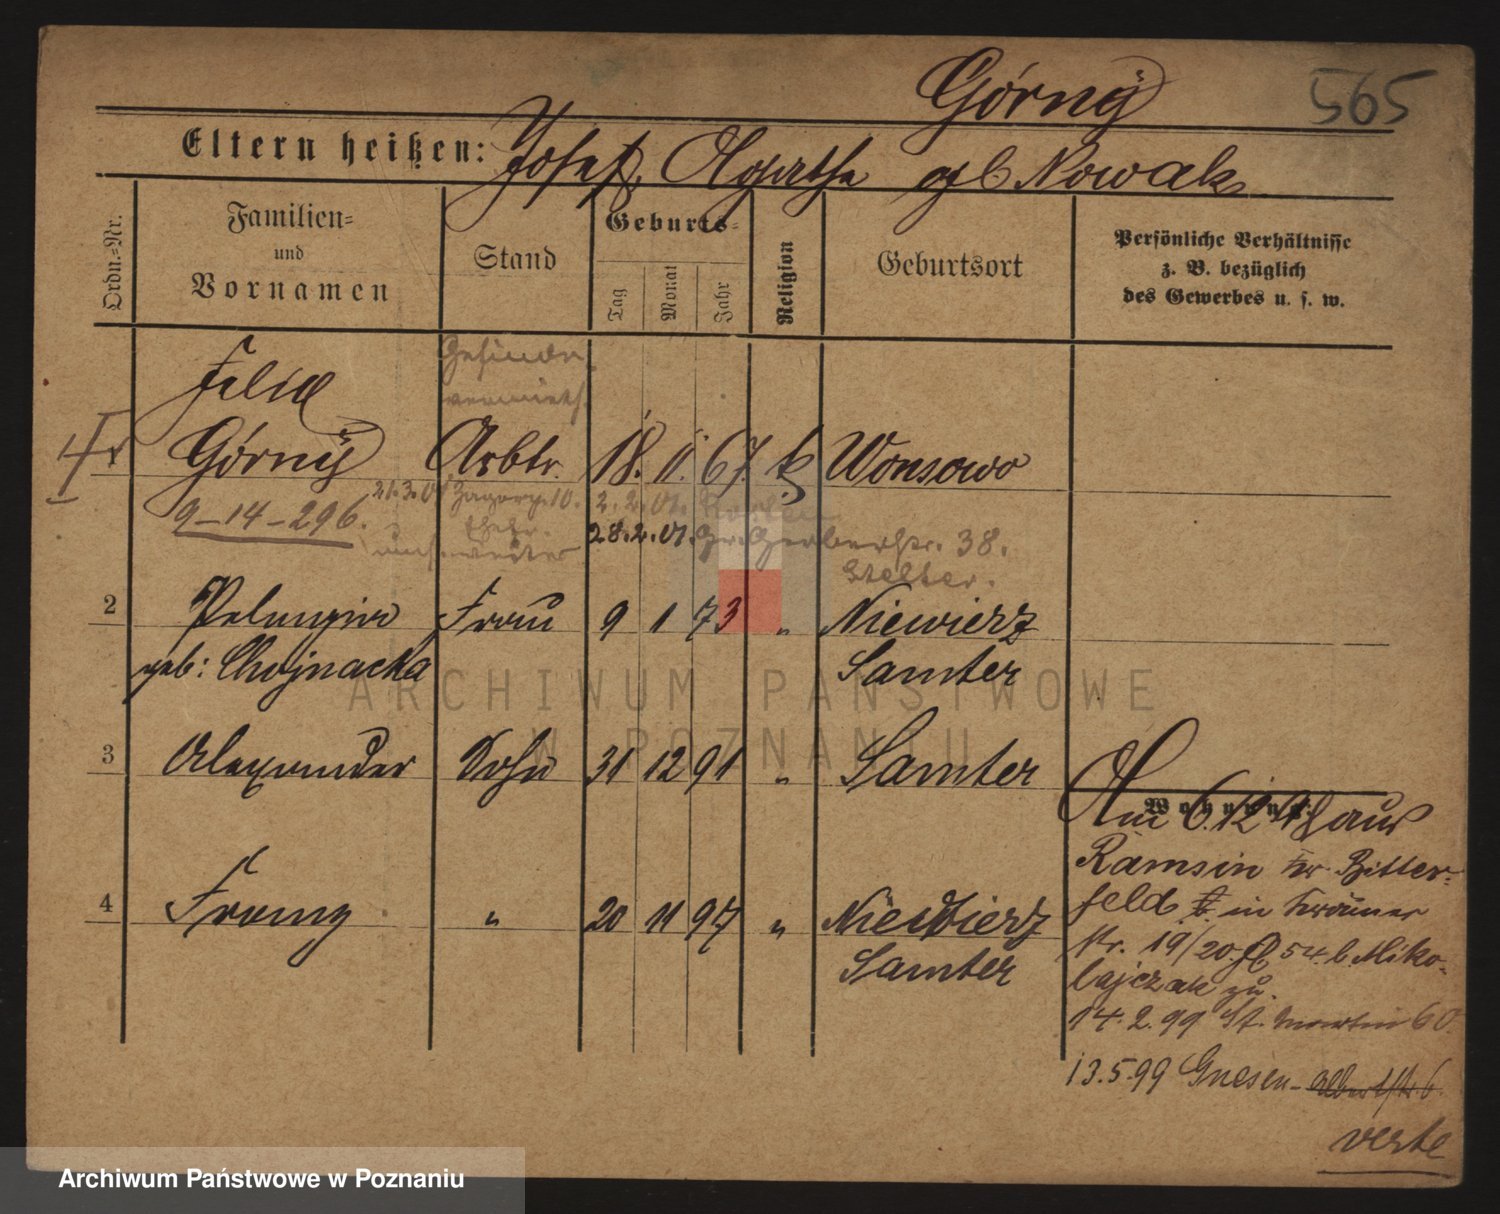 Górny 565
Eltern heißen: Josef, Agatha geb Nowak
Ordn.-Nr.
Familien-
und
Vornamen
Stand
Geburts-
Tag
Monat
Jahr
Religion
Geburtsort
Persönliche Verhältnisse
z. B. bezüglich
des Gewerbes u. s. w.
Gesinde
vermieth.
Felix
Górny Arbtr. 18. 11. 67. k Wonsowo
9-14-296. 21.3.01 Zagorze 10. 2.2.01.
28.2.01. Gr. Gerberstr. 38.
Stelter.
2 Pelagia Frau 9 1 73 " Niewierz
geb: Chojnacka Samter
3 Alexander Sohn 31 12 91 " Samter
Wohnung:
Am 6.12.98 aus
Ramsin Kr. Bitter-
feld in Krämer
str. 19/20 54. b. Miko-
lajczak zu.
4 Franz " 20 11 97 " Niewierz
Samter
14.2.99 St. Martin 60.
13.5.99 Gnesen - Albertstr. 6.
verte
ARCHIWUM PAŃSTWOWE
W POZNANIU
Archiwum Państwowe w Poznaniu